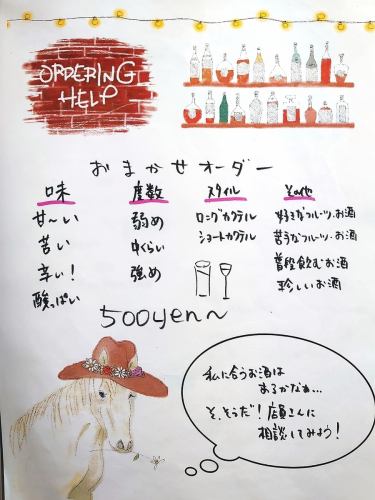 ORDERING
HELP
おまかせオーダー
味
甘〜い
苦い
辛い!
酸っぱい
度数
弱め
中くらい
強め
スタイル
ロングカクテル
ショートカクテル
その他
好きなフルーツ・お酒
苦手なフルーツ・お酒
普段飲むお酒
珍しいお酒
500yen〜
私に合うお酒は
あるかなぁ...
そ、そうだ!店員さんに
相談してみよう!